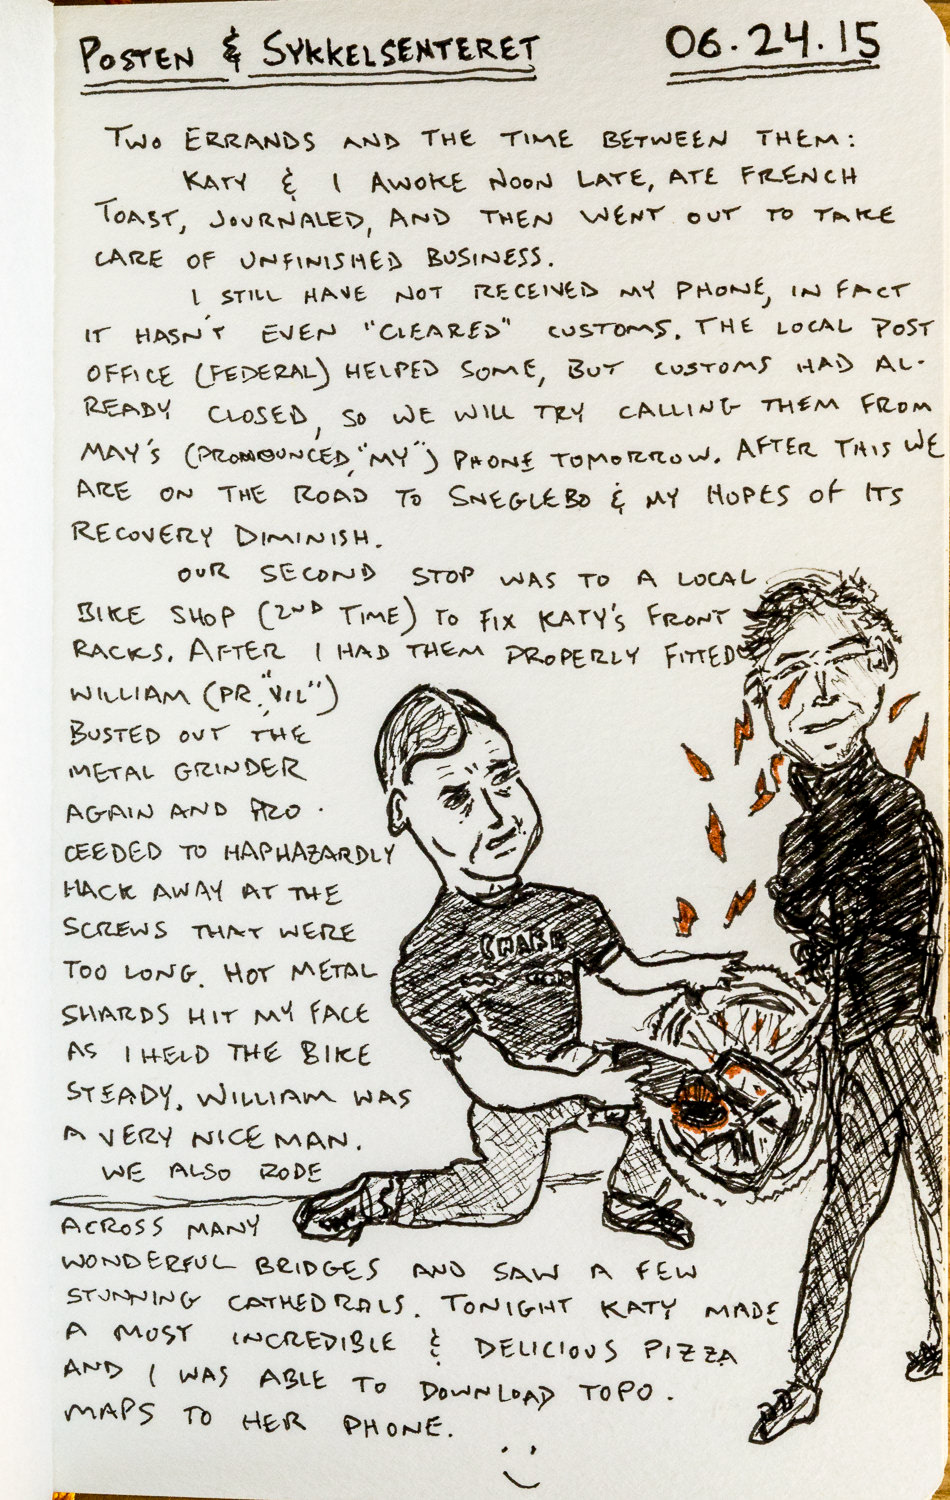 POSTEN & SYKKELSENTERET 06.24.15
TWO ERRANDS AND THE TIME BETWEEN THEM:
KATY & I AWOKE NOON LATE, ATE FRENCH
TOAST, JOURNALED, AND THEN WENT OUT TO TAKE
CARE OF UNFINISHED BUSINESS.
I STILL HAVE NOT RECEIVED MY PHONE, IN FACT
IT HASN'T EVEN "CLEARED" CUSTOMS. THE LOCAL POST
OFFICE (FEDERAL) HELPED SOME, BUT CUSTOMS HAD AL-
READY CLOSED, SO WE WILL TRY CALLING THEM FROM
MAY'S (PRONOUNCED, "MY") PHONE TOMORROW. AFTER THIS WE
ARE ON THE ROAD TO SNEGLEBO & MY HOPES OF ITS
RECOVERY DIMINISH.
OUR SECOND STOP WAS TO A LOCAL
BIKE SHOP (2ND TIME) TO FIX KATY'S FRONT
RACKS. AFTER I HAD THEM PROPERLY FITTED
WILLIAM (PR. "VIL")
BUSTED OUT THE
METAL GRINDER
AGAIN AND PRO-
CEEDED TO HAPHAZARDLY
HACK AWAY AT THE
SCREWS THAT WERE
TOO LONG. HOT METAL
SHARDS HIT MY FACE
AS I HELD THE BIKE
STEADY. WILLIAM WAS
A VERY NICE MAN.
WE ALSO RODE
ACROSS MANY
WONDERFUL BRIDGES AND SAW A FEW
STUNNING CATHEDRALS. TONIGHT KATY MADE
A MOST INCREDIBLE & DELICIOUS PIZZA
AND I WAS ABLE TO DOWNLOAD TOPO.
MAPS TO HER PHONE.